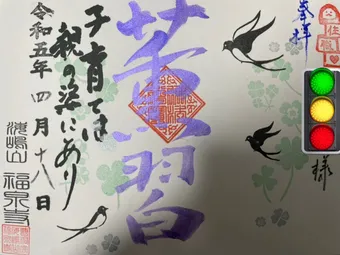 奉拝
様
薫習
子育ては
親の姿にあり
令和五年四月十八日
福泉寺